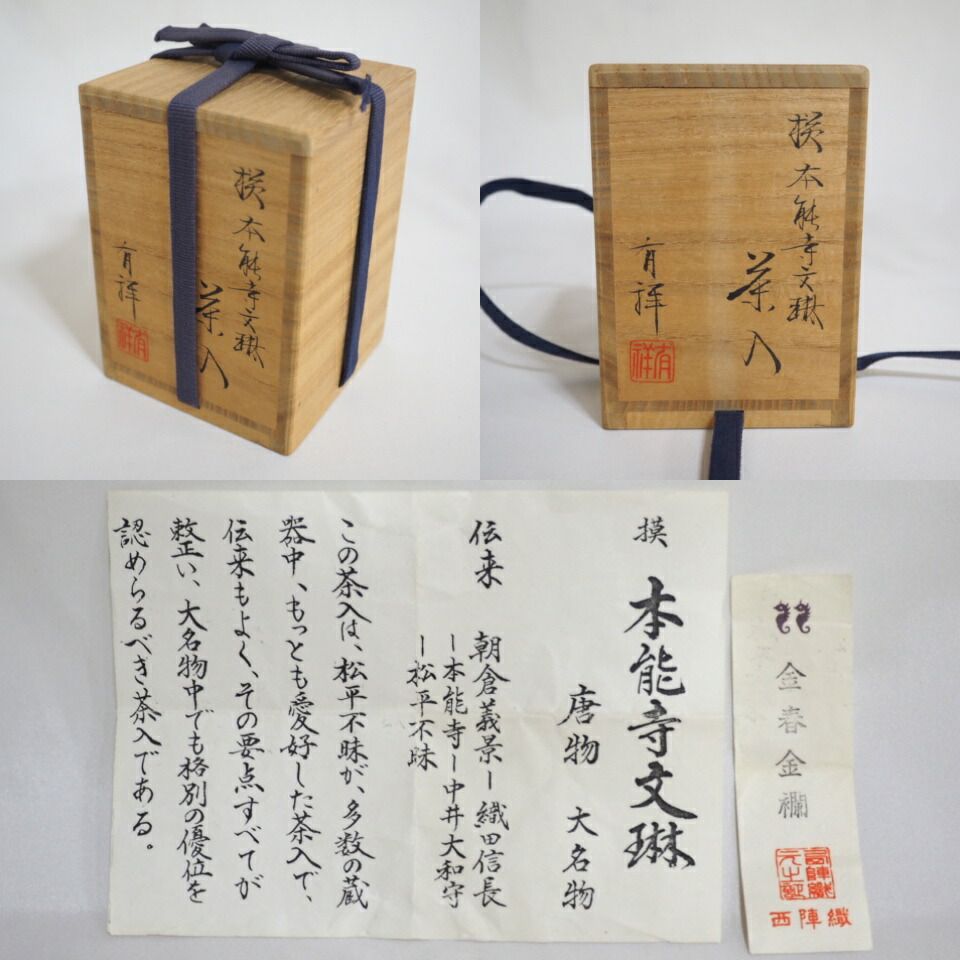 摸本能寺文琳
茶入
有祥
有祥
摸本能寺文琳
茶入
有祥
有祥
摸 本能寺文琳
唐物 大名物
伝来 朝倉義景ー織田信長
ー本能寺ー中井大和守
ー松平不昧
この茶入は、松平不昧が、多数の蔵
器中、もっとも愛好した茶入で、
伝来もよく、その要点すべてが
整い、大名物中でも格別の優位を
認めらるべき茶入である。
金春金襴
西陣織